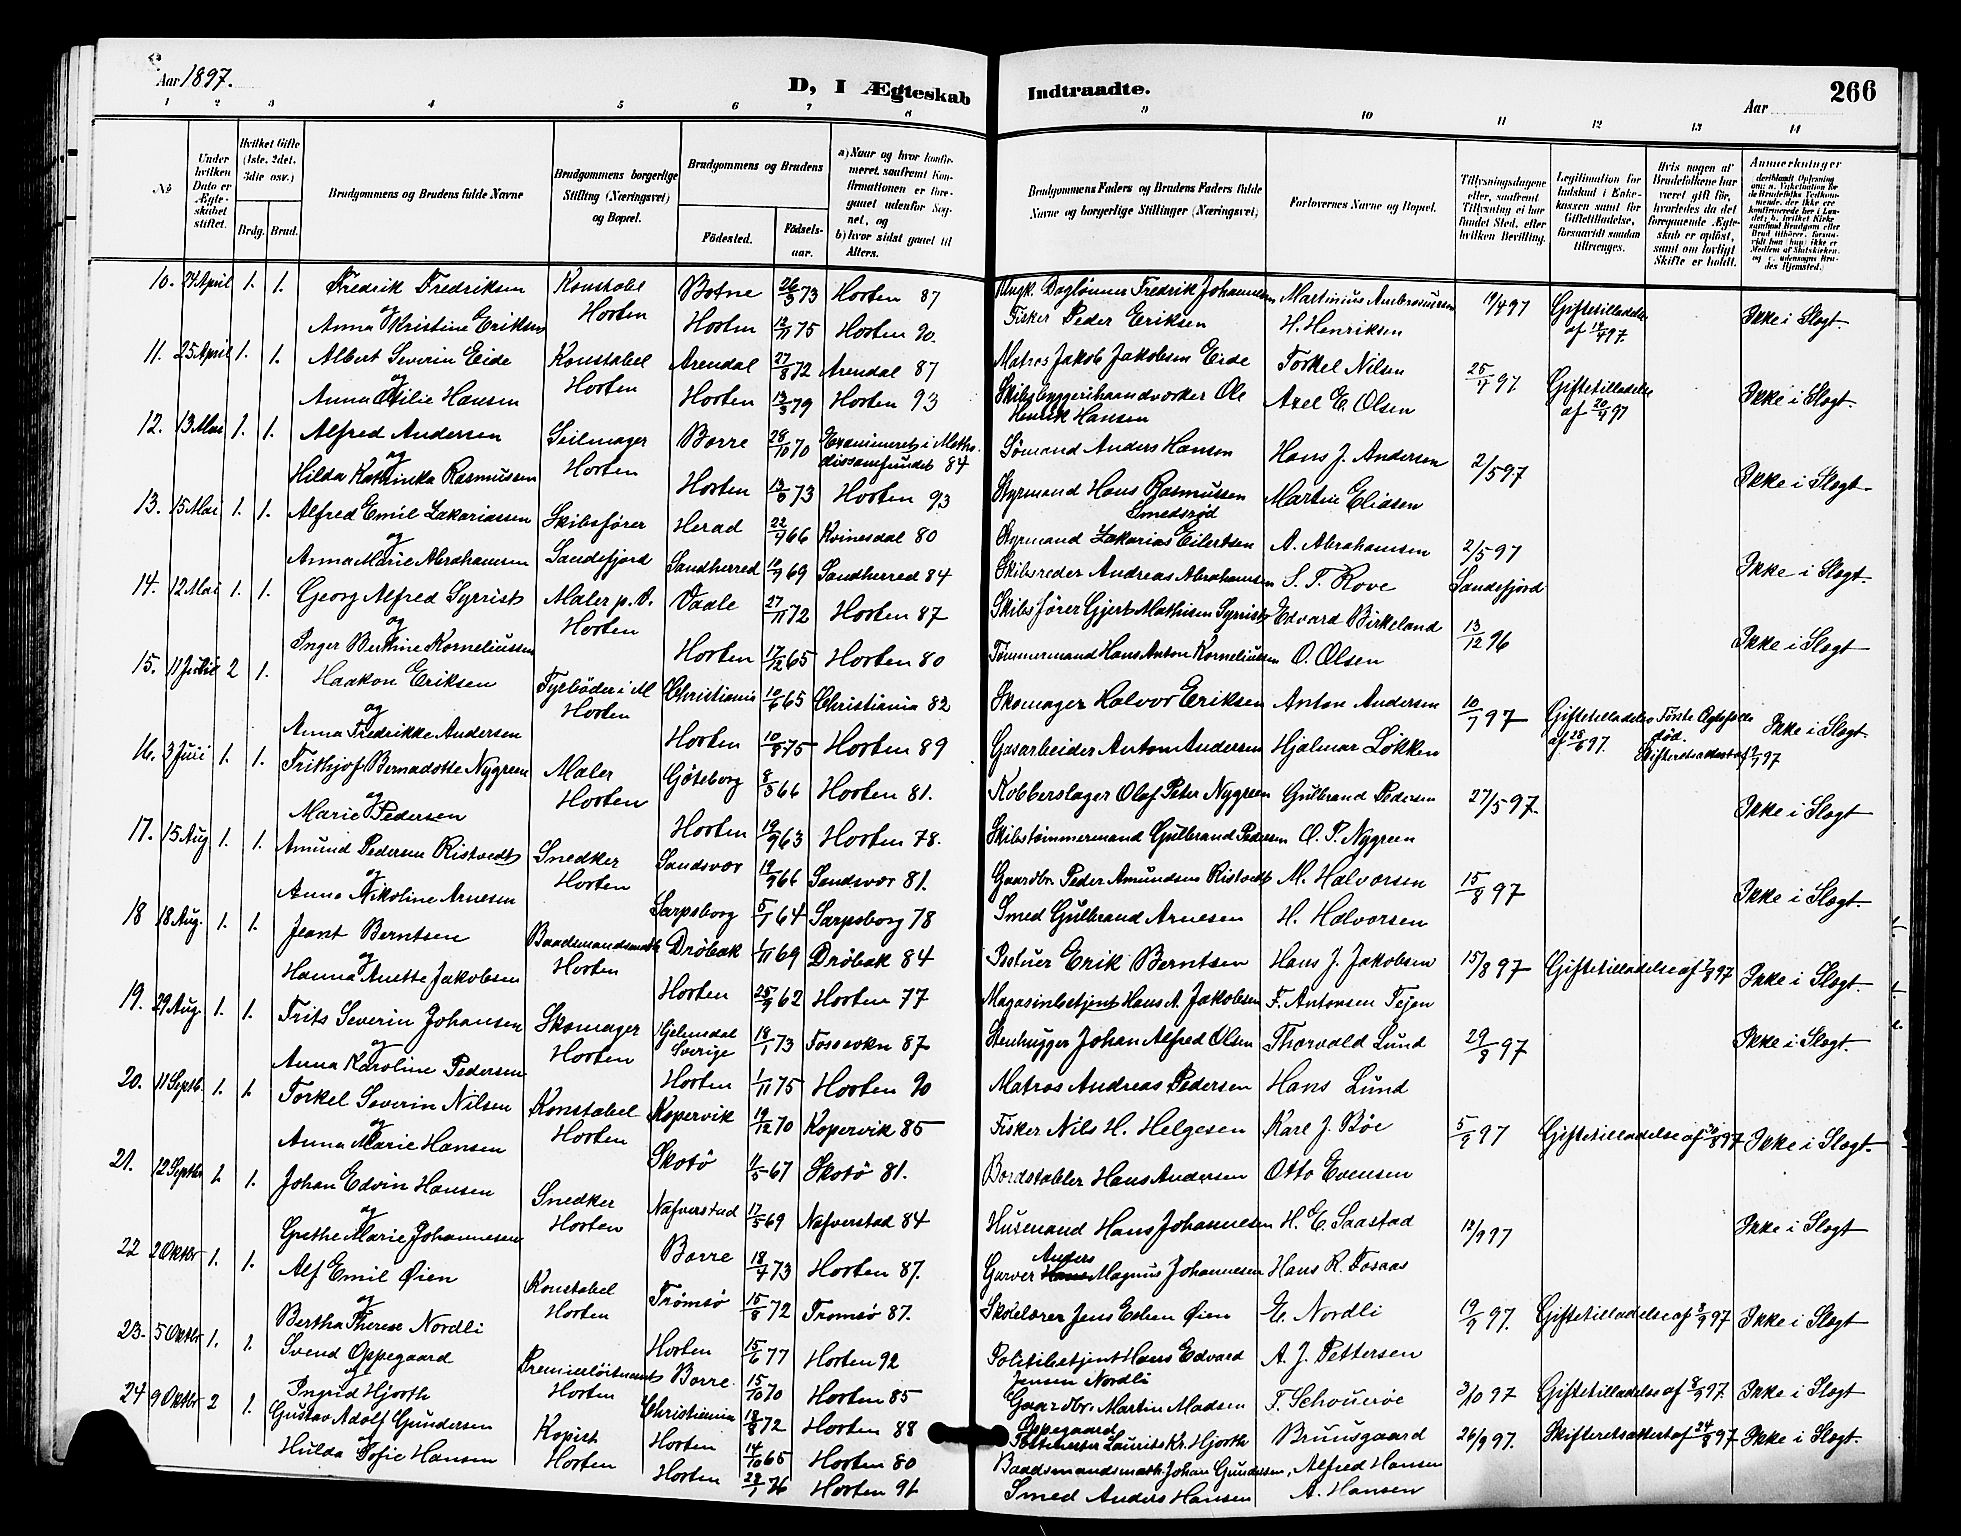 Aar 1897.
D, I Ægteskab Indtraadte.
Aar
266
1 2 3 4 5 6 7 8 9 10 11 12 13 14
No
Under hvilken Dato er Ægteskabet stiftet.
Hvilket Gifte (1ste, 2det, 3die osv.)
Brdg. Brud.
Brudgommens og Brudens fulde Navne
Brudgommens borgerlige Stilling (Næringsvei) og Bopæl.
Brudgommens og Brudens
Fødested. Fødselsaar.
a) Naar og hvor konfirmeret, saafremt Konfirmationen er foregaaet udenfor Sognet, og
b) hvor sidst gaaet til Alters.
Brudgommens Faders og Brudens Faders fulde Navne og borgerlige Stillinger (Næringsvei)
Forlovernes Navne og Bopæl.
Tillysningsdagene eller, saafremt Tillysning ei har fundet Sted, efter hvilken Bevilling.
Legitimation for Indskud i Enkekassen samt for Giftetilladelse, forsaavidt saadan tiltrænges.
Hvis nogen af Brudefolkene har været gift før, hvorledes da det foregaaende Ægteskab er opløst, samt om lovligt Skifte er holdt.
Anmærkninger
10. 24 April 1. 1. Fredrik Fredriksen Konstabel Botne 26/3 73 Horten 87 Ungk. Daglønner Fredrik Johannesen Martinius Ambrosiussen 19/4 97 Giftetilladelse Ikke i Slægt.
og Horten
Anna Kristine Eriksen Horten 12/11 75 Horten 90. Fisker Peder Eriksen H. Henriksen af 12/4 97.
11. 25 April 1. 1. Albert Severin Eide Konstabel Arendal 27/8 72 Arendal 87 Matros Jakob Jakobsen Eide Torkel Nilsen 25/4 97 Giftetilladelse Ikke i Slægt.
og Horten
Anna Otilie Hansen Horten 12/3 79 Horten 93 Skibsbyggerihaandværker Ole Axel E. Olsen af 20/4 97
Henrik Hansen
12. 13 Mai 1. 1. Alfred Andersen Seilmager Borre 28/10 70 Examineret i Metho- Sømand Anders Hansen Hans J. Andersen 2/5 97 Ikke i Slægt.
og Horten dissamfundet 84
Hilda Kathinka Rasmussen Horten 13/6 73 Horten 93 Styrmand Hans Rasmussen Martin Eliasen
Smedsrød
13. 15 Mai 1. 1. Alfred Emil Zakariassen Skibsfører Herad 22/7 66 Kvinesdal 80 Styrmand Zakarias Eilertsen A. Abrahamsen 2/5 97 Ikke i Slægt.
og Sandefjord
Anna Marie Abrahamsen Sandherred 10/9 69 Sandherred 84 Skibsreder Andreas Abrahamsen S. T. Rove Sandefjord
14. 12 Mai 1. 1. Georg Alfred Syrrist Maler p. V. Vaale 27/11 72 Horten 87 Skibsfører Gjert Mathisen Syrrist Edvard Birkeland 13/12 96 Ikke i Slægt
og Horten
Inger Bertine Korneliussen Horten 17/12 65 Horten 80 Tømmermand Hans Anton Korneliussen O. Olsen
15. 11 Juli 2 1. Haakon Eriksen Fyrbøder i M Christiania 10/6 65 Christiania 82 Skomager Halvor Eriksen Anton Andersen 10/7 97 Giftetilladelse Første Ægtefælle Ikke i Slægt
og Horten af 25/6 97. død.
Anna Fredrikke Andersen Horten 10/8 75 Horten 89 Gasarbeider Anton Andersen Hjalmar Løkken Skifteretsattest af 9/7 97
16. 3 Juli 1. 1. Frithjof Bernadotte Nygreen Maler Göteborg 8/5 66 Horten 81. Kobberslager Olaf Peter Nygreen Gulbrand Pedersen 27/5 97. Ikke i Slægt
og Horten
Marie Pedersen Horten 19/9 63 Horten 78. Skibstømmermand Gulbrand Pedersen O. P. Nygreen
17. 15 Aug 1. 1. Amund Pedersen Ristvedt Snedker Sandsvær 19/9 66 Sandsvær 81. Gaardbr. Peder Amundsen Ristvedt M. Halvorsen 15/8 97 Ikke i Slægt.
og Horten
Anna Nikoline Arnesen Sarpsborg 5/7 64 Sarpsborg 78 Smed Gulbrand Arnesen H. Halvorsen
18 18 Aug. 1. 1. Jeant Berntsen Baadsmandsmath Drøbak 1/11 69 Drøbak 84 Erik Berntsen Hans J. Jakobsen 15/8 97 Giftetilladelse af 7/7 97 Ikke i Slægt.
og Horten
Hanna Anette Jakobsen Horten 25/9 62 Horten 77 Magasinbetjent Hans A. Jakobsen F. Antonsen Tejen
19. 29 Aug. 1. 1. Frits Severin Johansen Skomager Gjelmsdal Sverige 18/1 73 Fossevkn 87 Stenhugger Johan Alfred Olsen Thorvald Lund 29/8 97 Ikke i Slægt.
og Horten
Anna Karoline Pedersen Horten 1/11 75 Horten 90 Matros Andreas Pedersen Hans Lund
20. 11 Septb. 1. 1. Torkel Severin Nilsen Konstabel Kopervik 19/12 70 Kopervik 85 Fisker Nils H. Helgesen Karl J. Bøe 5/9 97 Giftetilladelse af 30/8 97 Ikke i Slægt.
og Horten
Anna Marie Hansen Skotø 11/5 67 Skotø 81. Bordstabler Hans Andersen Otto Evensen
21. 12 Septbr 1. 1. Johan Edvin Hansen Snedker Nafverstad 17/5 69 Nafverstad 84 Husmand Hans Johannesen H. E. Saastad 12/9 97 Ikke i Slægt
og Horten
Grethe Marie Johannesen Borre 18/4 73 Horten 87. Garver Anders Magnus Johannesen Hans R. Fosaas
22 2 Oktbr 1. 1. Alf Emil Øien Konstabel Tromsø 15/8 72 Tromsø 87. Skolelærer Jens Esben Øien E. Nordli 19/9 97. Giftetilladelse af 8/9 97 Ikke i Slægt
og Horten
Bertha Therese Nordli Horten 15/6 77 Horten 92 Politibetjent Hans Edvard A. J. Pettersen
Jensen Nordli
23. 5 Oktbr 1. 1. Svend Oppegaard Premierløitnant Borre. 15/10 70 Horten 85 Gaardbr. Martin Madsen F. Schouerøe 3/10 97 Giftetilladelse af 8/9 97. Ikke i Slægt
og Horten Oppegaard
Ingrid Hjorth Christiania 18/8 72 Horten 88 Postmester Laurits Kr. Hjorth Bruusgaard
24 9 Oktbr 2 1. Gustav Adolf Gundersen Kopist Horten 14/10 65 Horten 80 Baadsmandsmath. Johan Gundersen, Alfred Hansen 26/9 97. Skifteretsattest af 24/8 97 Ikke i Slægt.
og Horten
Hulda Sofie Hansen Horten 22/1 76 Horten 91 Smed Anders Hansen A. Hansen